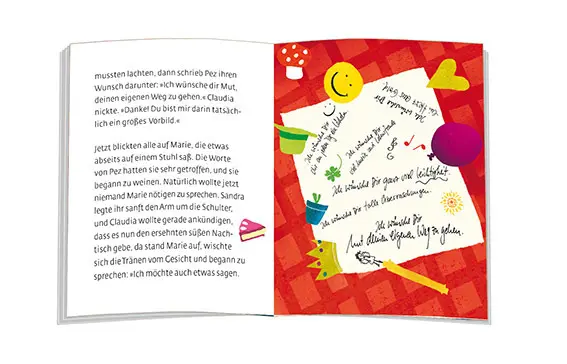 mussten lachten, dann schrieb Pez ihren
Wunsch darunter: »Ich wünsche dir Mut,
deinen eigenen Weg zu gehen.« Claudia
nickte. »Danke! Du bist mir darin tatsäch-
lich ein großes Vorbild.«
Jetzt blickten alle auf Marie, die etwas
abseits auf einem Stuhl saß. Die Worte
von Pez hatten sie sehr getroffen, und sie
begann zu weinen. Natürlich wollte jetzt
niemand Marie nötigen zu sprechen. Sandra
legte ihr sanft den Arm um die Schulter,
und Claudia wollte gerade ankündigen,
dass es nun den ersehnten süßen Nach-
tisch gebe, da stand Marie auf, wischte
sich die Tränen vom Gesicht und begann zu
sprechen: »Ich möchte auch etwas sagen.
Ich wünsche Dir
Ich wünsche Dir
Ich wünsche Dir
Ich wünsche Dir ganz viel Leichtigkeit.
Ich wünsche Dir tolle Überraschungen.
Ich wünsche Dir
Mut deinen eigenen Weg zu gehen.